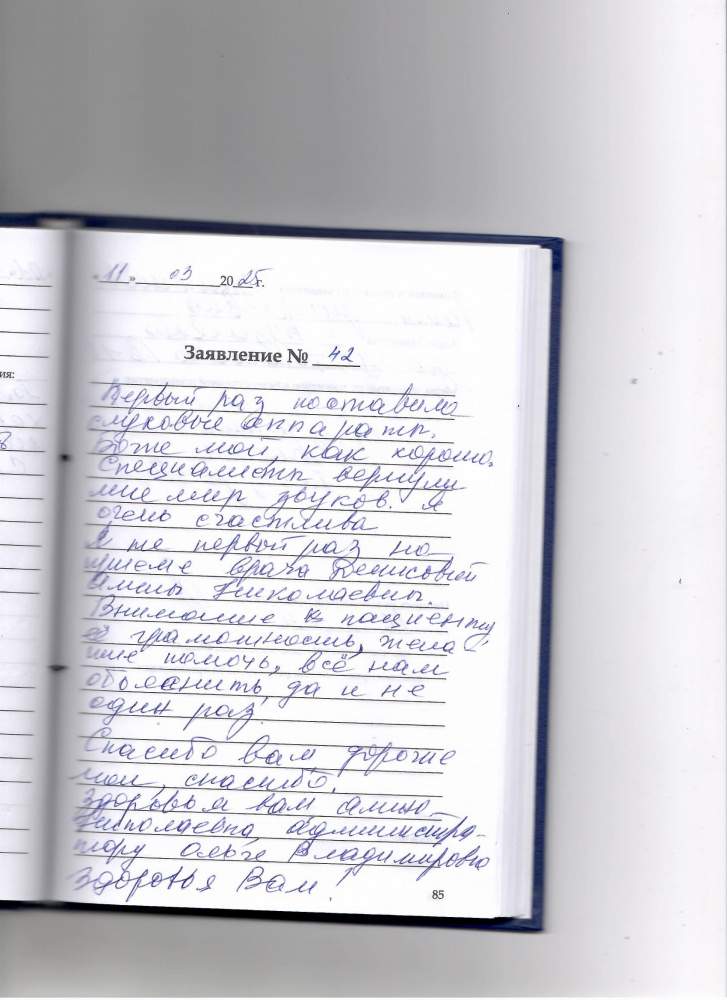 «11» 03 2025 г.
ия:
Заявление № 42
Первый раз поставила
слуховые аппараты.
Боже мой, как хорошо.
Специалисты вернули
мне мир звуков. Я
очень счастлива
Я не первый раз на
приеме врача Денисовой
Николаевны.
Внимание к пациенту,
её грамотность, жела-
ние помочь, всё нам
объяснить, да и не
один раз.
Спасибо вам дорогие
мои, спасибо.
Здоровья вам,
Николаевна, администра-
тору Ольге Владимировна
Здоровья Вам!
85